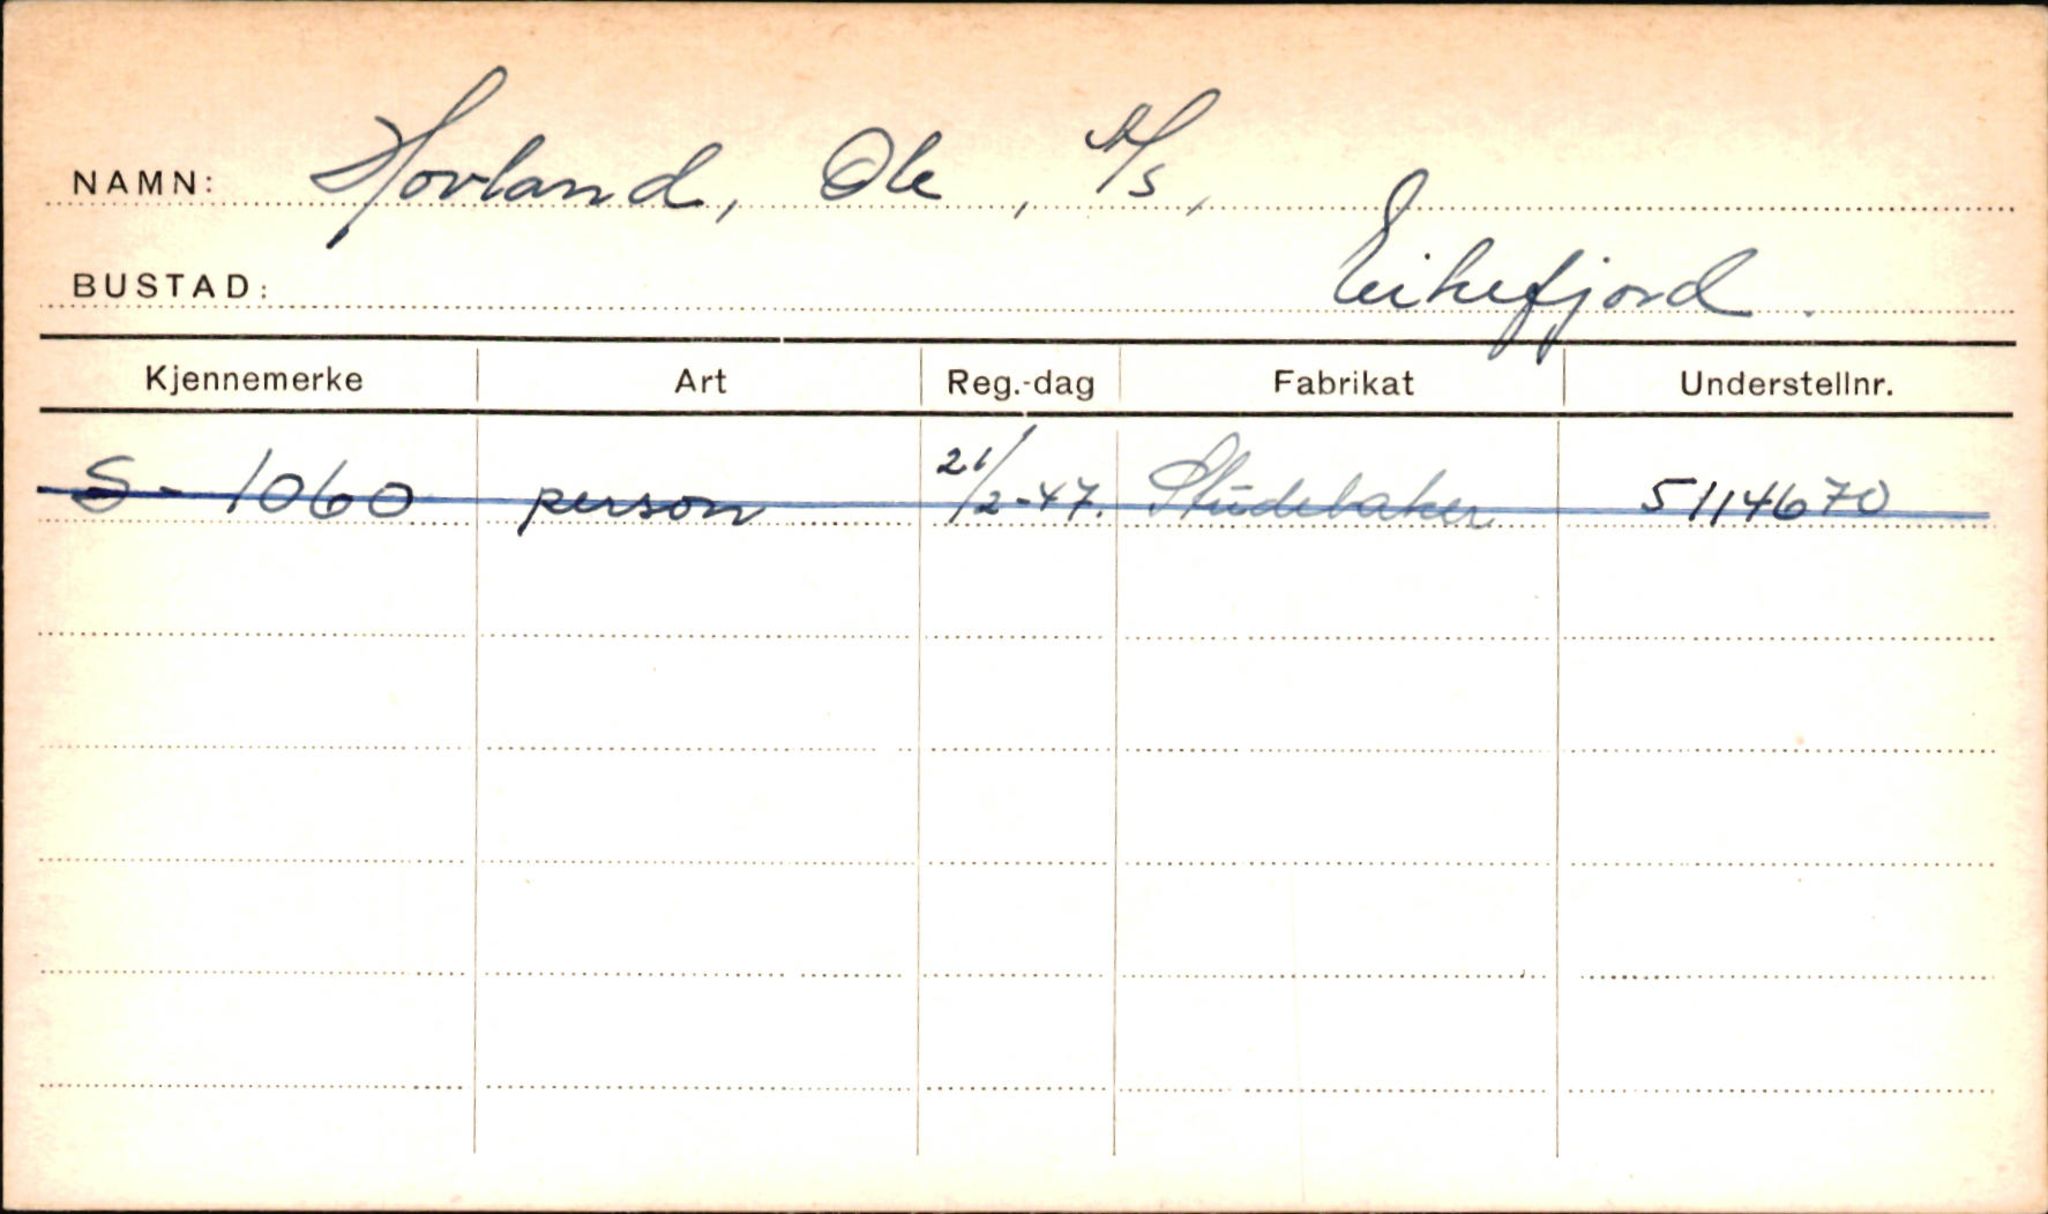 NAMN: Hovland, Ole, A/s,
BUSTAD: Eikefjord.
Kjennemerke Art Reg.-dag Fabrikat Understellnr.
S - 1060 person 21/2-47. Studebaker 5114670